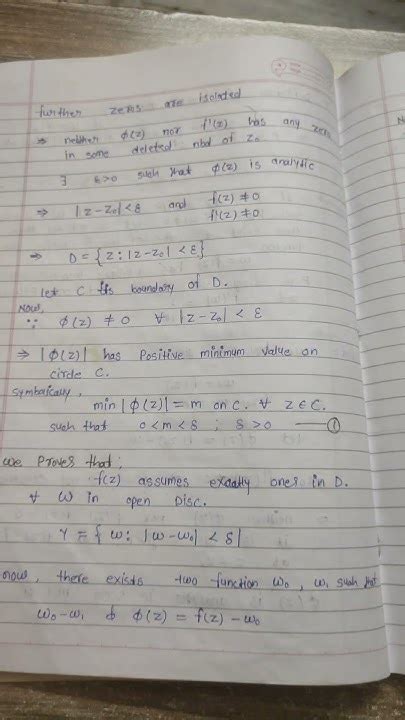 further zeros are isolated
⇒ neither ϕ(z) nor f'(z) has any zero
in some deleted nbd of z₀
∃ ε>0 such that ϕ(z) is analytic
⇒ |z-z₀|<ε and f(z)≠0
f'(z)≠0
⇒ D={z:|z-z₀|<ε}
let C its boundary of D.
Now,
∵ ϕ(z) ≠ 0 ∀ |z-z₀| < ε
⇒ |ϕ(z)| has Positive minimum value on
circle C.
Symbolically,
min |ϕ(z)| = m on C. ∀ z∈C.
such that 0<m<δ ; δ>0 — ①
we Proves that;
f(z) assumes exactly ones in D.
∀ W in open Disc.
γ = { w: |w-w₀| < δ|
now, there exists two function w₀, w₁ such that
w₀-w₁ & ϕ(z) = f(z) - w₀